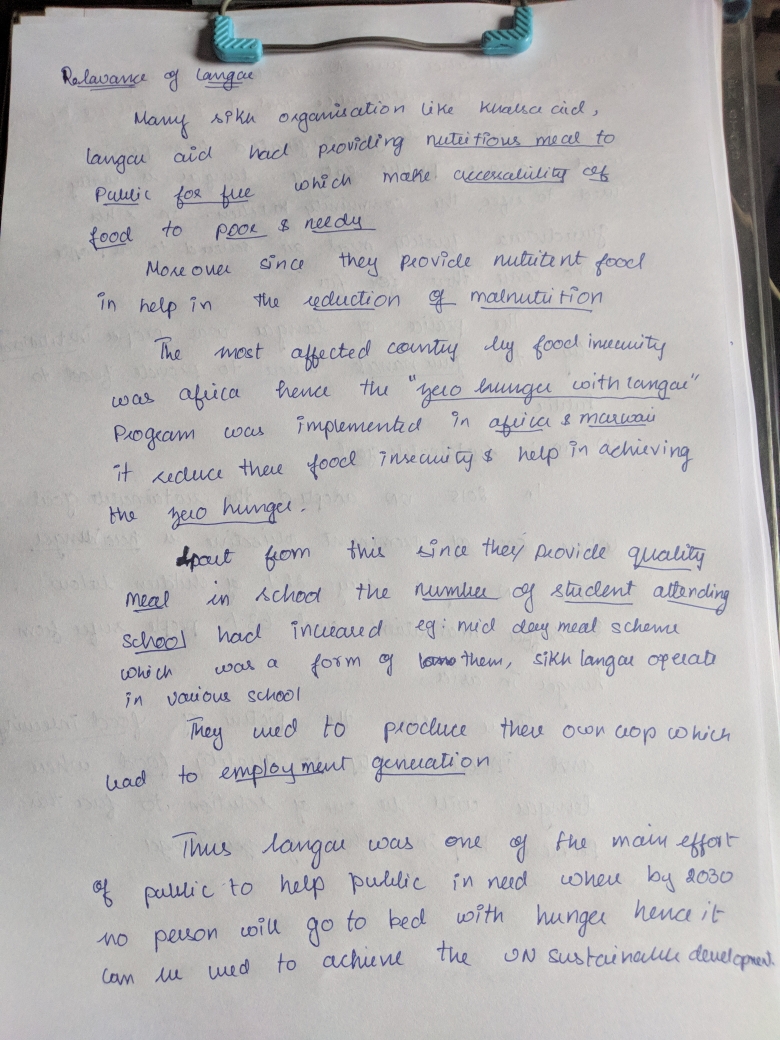 Relavance of langar
Many sikh organisation like Khalsa aid,
langar aid had providing nutritious meal to
Public for free which make accessability of
food to poor & needy
More over since they provide nutritent food
in help in the reduction of malnutrition
The most affected country by food insecurity
was africa hence the "zero hunger with langar"
Program was implemented in africa &
it reduce there food insecurity & help in achieving
the zero hunger.
Apart from this since they provide quality
meal in school the number of student attending
school had increared eg: mid day meal scheme
which was a form of them, sikh langar operate
in various school
They used to produce there own crop which
lead to employment generation
Thus langar was one of the main effort
of public to help public in need where by 2030
no person will go to bed with hunger hence it
can be used to achieve the UN sustainable development